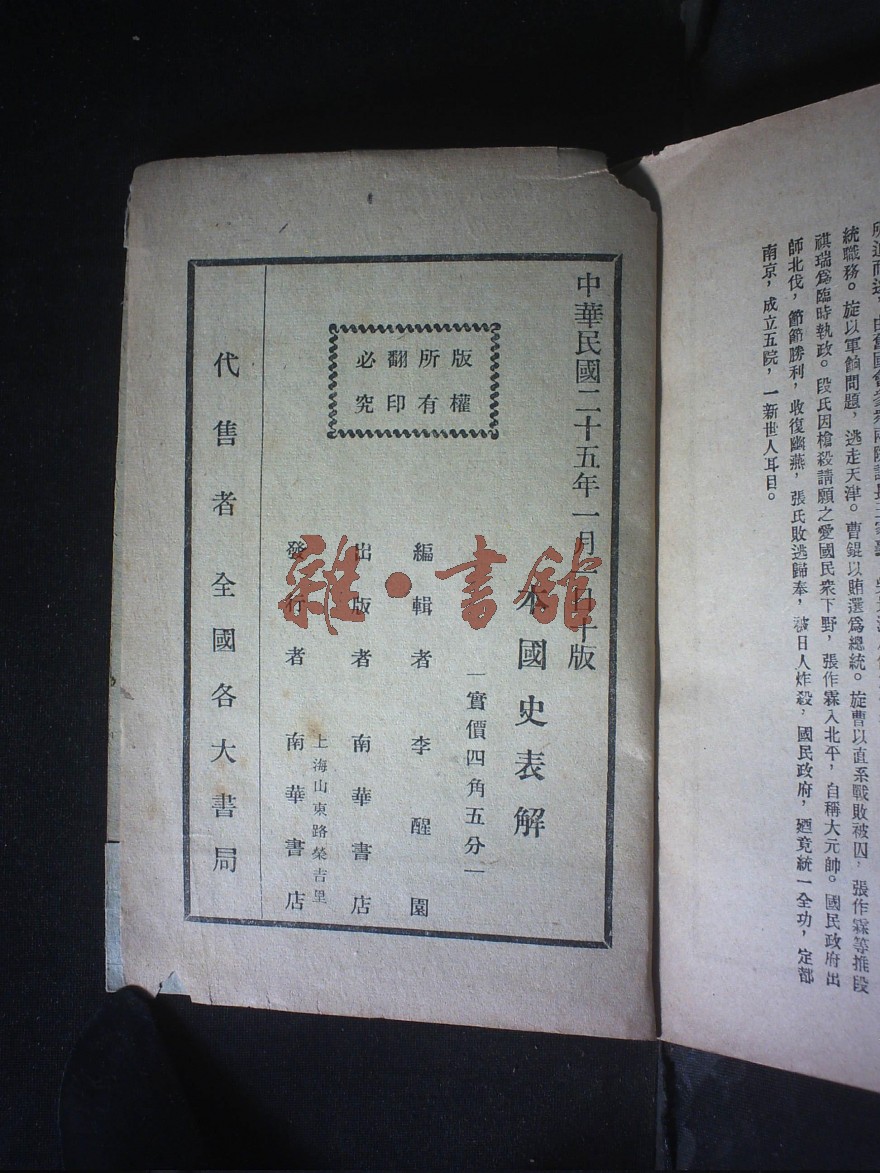 所迫而逃，由舊國會參衆兩院議長王家襄
統職務。旋以軍餉問題，逃走天津。曹錕以賄選爲總統。旋曹以直系戰敗被囚，張作霖等推段
祺瑞爲臨時執政。段氏因槍殺請願之愛國民衆下野，張作霖入北平，自稱大元帥。國民政府出
師北伐，節節勝利，收復幽燕，張氏敗逃歸奉，被日人炸殺，國民政府，廼竟統一全功，定都
南京，成立五院，一新世人耳目。
中華民國二十五年一月一日十版
本國史表解
實價四角五分
版權
所有
翻印
必究
編輯者 李醒園
出版者 南華書店
上海山東路榮吉里
發行者 南華書店
代售者 全國各大書局
雜·書館